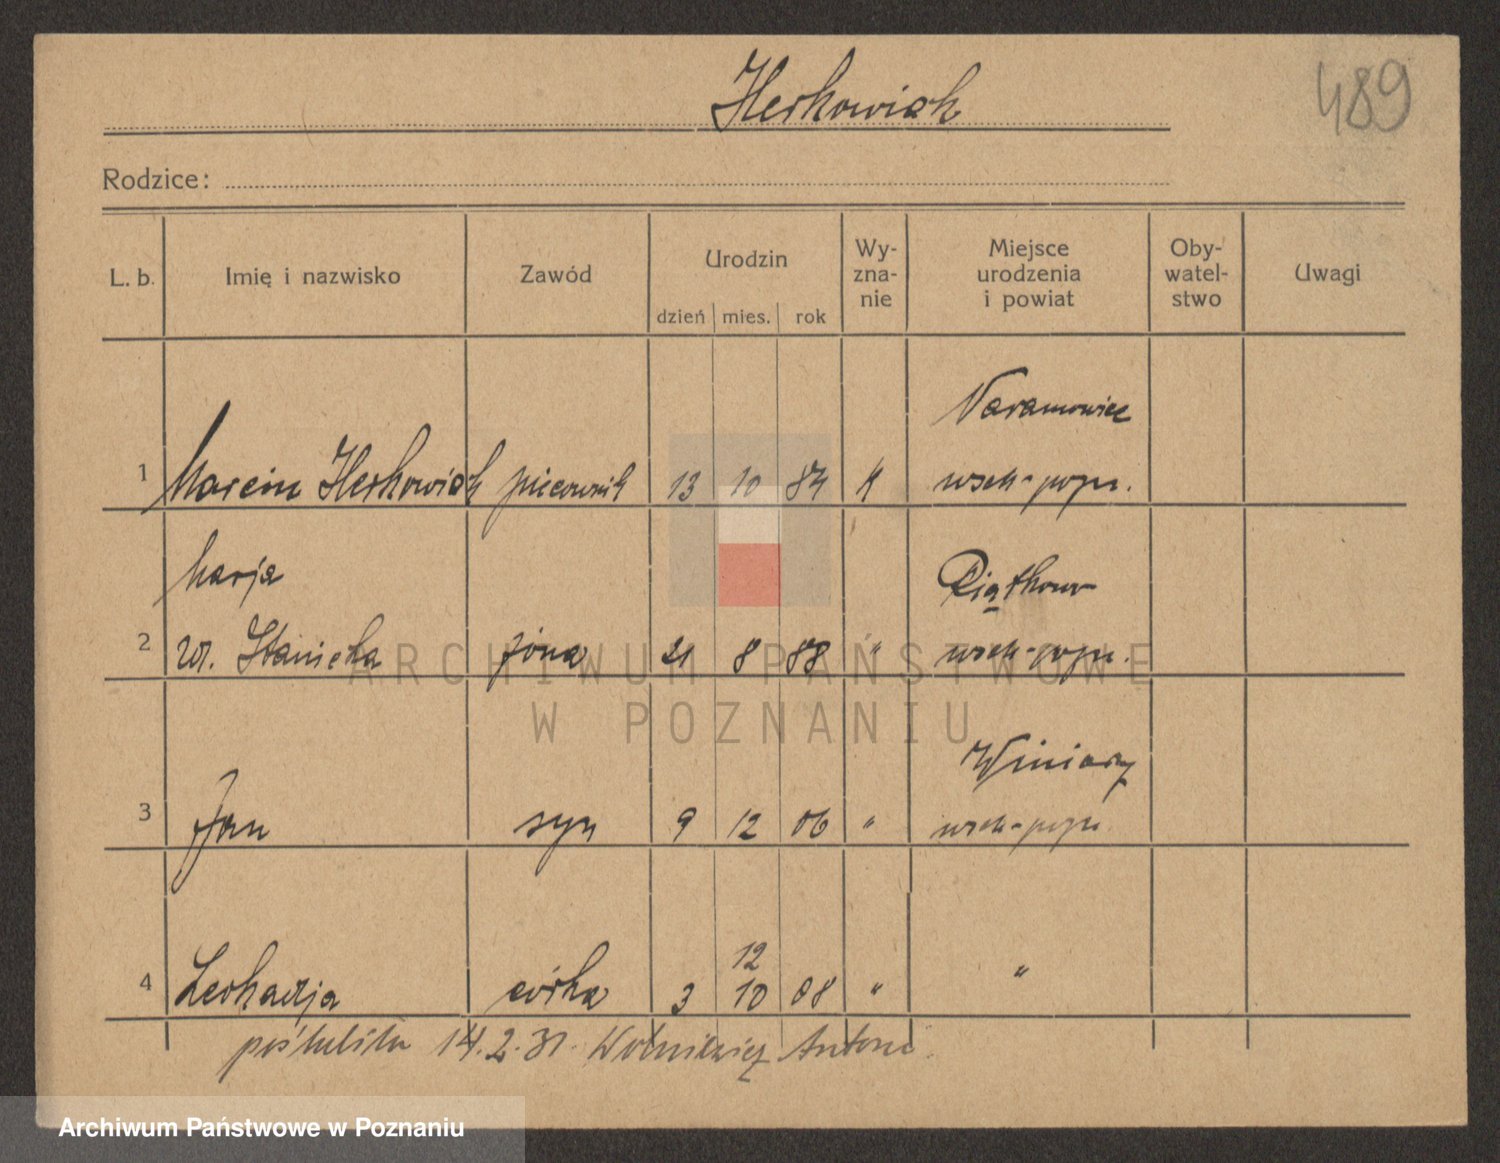 Herkowiak
489
Rodzice:
L. b. Imię i nazwisko Zawód Urodzin dzień mies. rok Wy-zna-nie Miejsce urodzenia i powiat Oby-watel-stwo Uwagi
Naramowice
1 Marcin Herkowiak piecownik 13 10 84 K wsch-pozn.
Marja Piątkowo
2 ur. Stanicka żona 21 8 88 " wsch-pozn.
Winiary
3 Jan syn 9 12 06 " wsch-pozn
12
4 Leokadja córka 3 10 08 " "
poślubiła 14.2.31. Antoni
ARCHIWUM PAŃSTWOWE
W POZNANIU
Archiwum Państwowe w Poznaniu